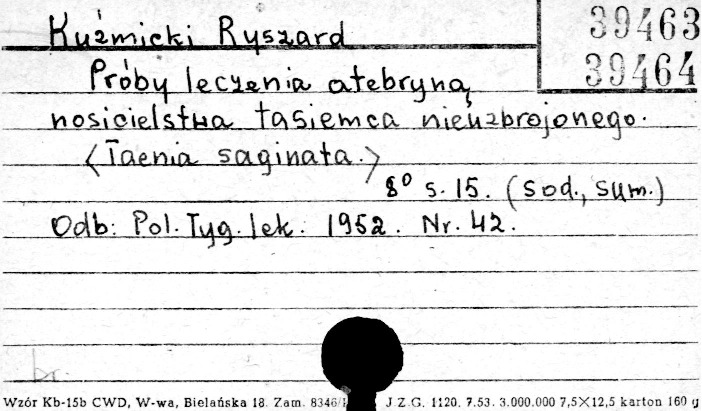 Kuźmicki Ryszard
39463
39464
Próby leczenia atebryną
nosicielstwa tasiemca nieuzbrojonego.
<Taenia saginata.>
8° s. 15. (sod., sum.)
Odb: Pol. Tyg. lek. 1952. Nr. 42.
br.
Wzór Kb-15b CWD, W-wa, Bielańska 18. Zam. 8346/ J.Z.G. 1120. 7.53. 3.000.000 7,5×12,5 karton 160 g